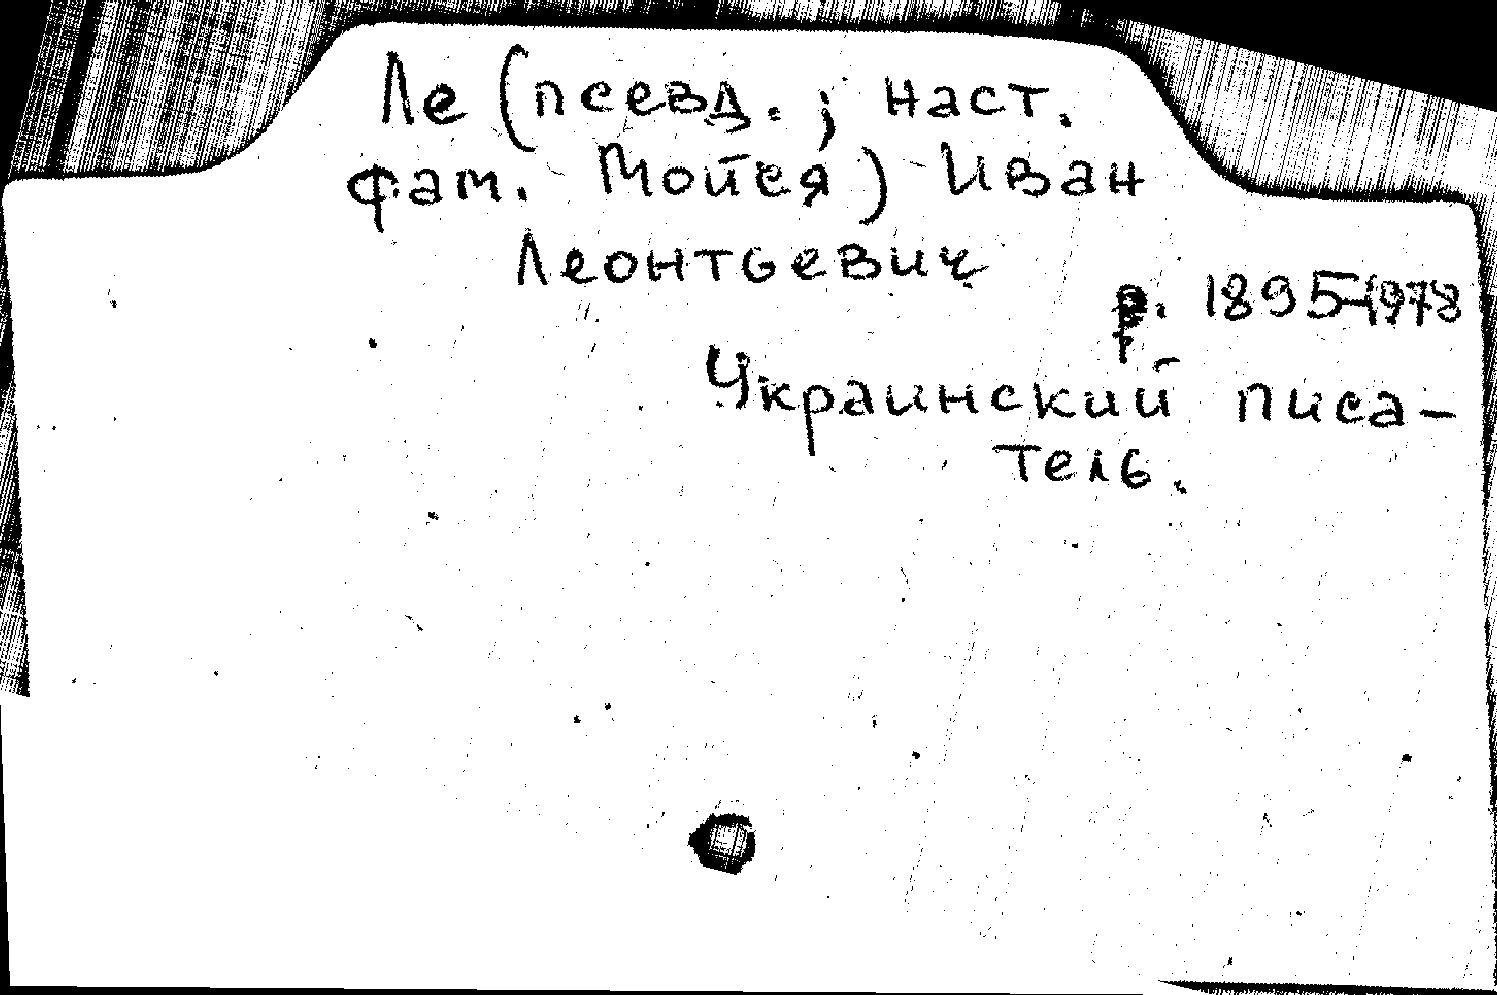 Ле (псевд.; наст.
фам. Мойся) Иван
Леонтьевич
р. 1895-1978
Украинский писа-
тель.